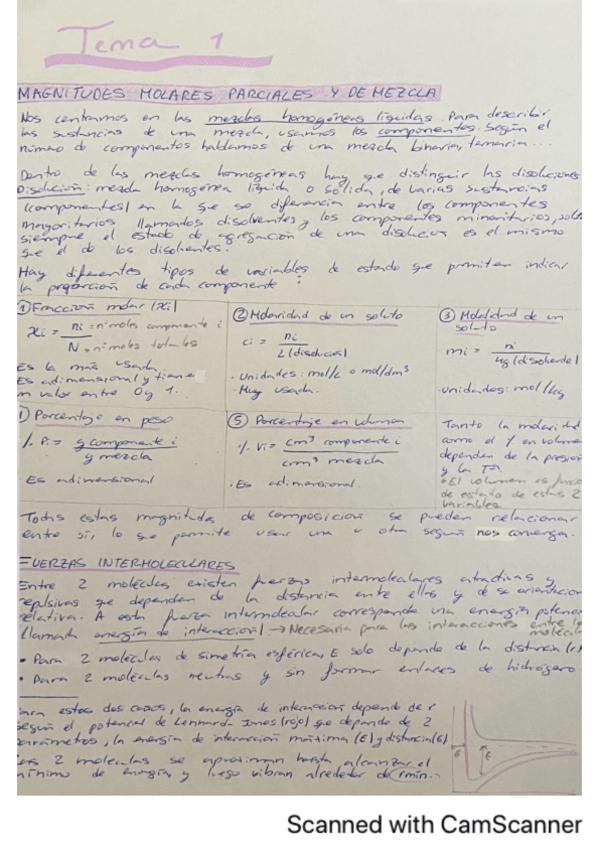 Tema 1
MAGNITUDES MOLARES PARCIALES Y DE MEZCLA
Nos centramos en las mezclas homogéneas líquidas. Para describir
las sustancias de una mezcla, usamos los componentes. Según el
número de componentes hablamos de una mezcla binaria, ternaria...
Dentro de las mezclas homogéneas hay que distinguir las disoluciones
Disolución: mezcla homogénea líquida o sólida, de varias sustancias
(componentes) en la que se diferencia entre los componentes
mayoritarios llamados disolventes y los componentes minoritarios,
siempre el estado de agregación de una disolución es el mismo
que el de los disolventes.
Hay diferentes tipos de variables de estado que permiten indicar
la proporción de cada componente:
① Fracción molar (xi)
xi = ni = nº moles componente i
N = nº moles totales
Es la más usada
Es adimensional y tiene
un valor entre 0 y 1.
② Molaridad de un soluto
ci = ni
L (disolución)
· Unidades: mol/L o mol/dm³
· Muy usada.
③ Molalidad de un
soluto
mi = ni
kg (disolvente)
· Unidades: mol/kg
Porcentaje en peso
% Pi = g componente i
g mezcla
Es adimensional
⑤ Porcentaje en volumen
% Vi = cm³ componente i
cm³ mezcla
· Es adimensional.
Tanto la molaridad
como el % en volumen
dependen de la presión
y la Tª
· El volumen es función
de estado de estas 2
variables
Todas estas magnitudes de composición se pueden relacionar
entre sí, lo que permite usar una u otra según nos convenga.
FUERZAS INTERMOLECULARES
Entre 2 moléculas existen fuerzas intermoleculares atractivas y
repulsivas que dependen de la distancia entre ellas y de su orientación
relativa. A esta fuerza intermolecular corresponde una energía potencial
(llamada energía de interacción) → Necesaria para las interacciones entre
· Para 2 moléculas de simetría esférica, E solo depende de la distancia (r)
· Para 2 moléculas neutras y sin formar enlaces de hidrógeno
Para estos dos casos, la energía de interacción depende de r
según el potencial de Lennard-Jones (rojo) que depende de 2
parámetros, la energía de interacción máxima (ε) y distancia (σ)
Las 2 moléculas se aproximan hasta alcanzar el
mínimo de energía y luego vibran alrededor de rmín.
Scanned with CamScanner